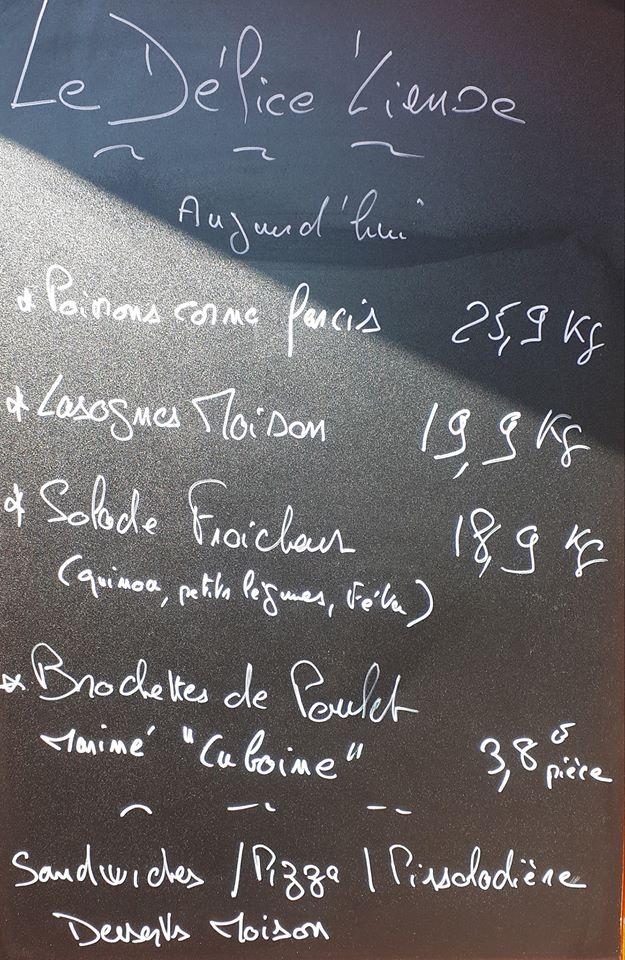 Le Délice
Aujourd'hui
* Poivrons corne farcis 25,9 Kg
* Lasagnes Maison 19,9 Kg
* Salade Fraicheur 18,9 Kg
(quinoa, petits légumes, Féta)
* Brochettes de Poulet
Mariné "Cubaine" 3,8 pièce
Sandwiches / Pizza / Pissaladière
Desserts Maison